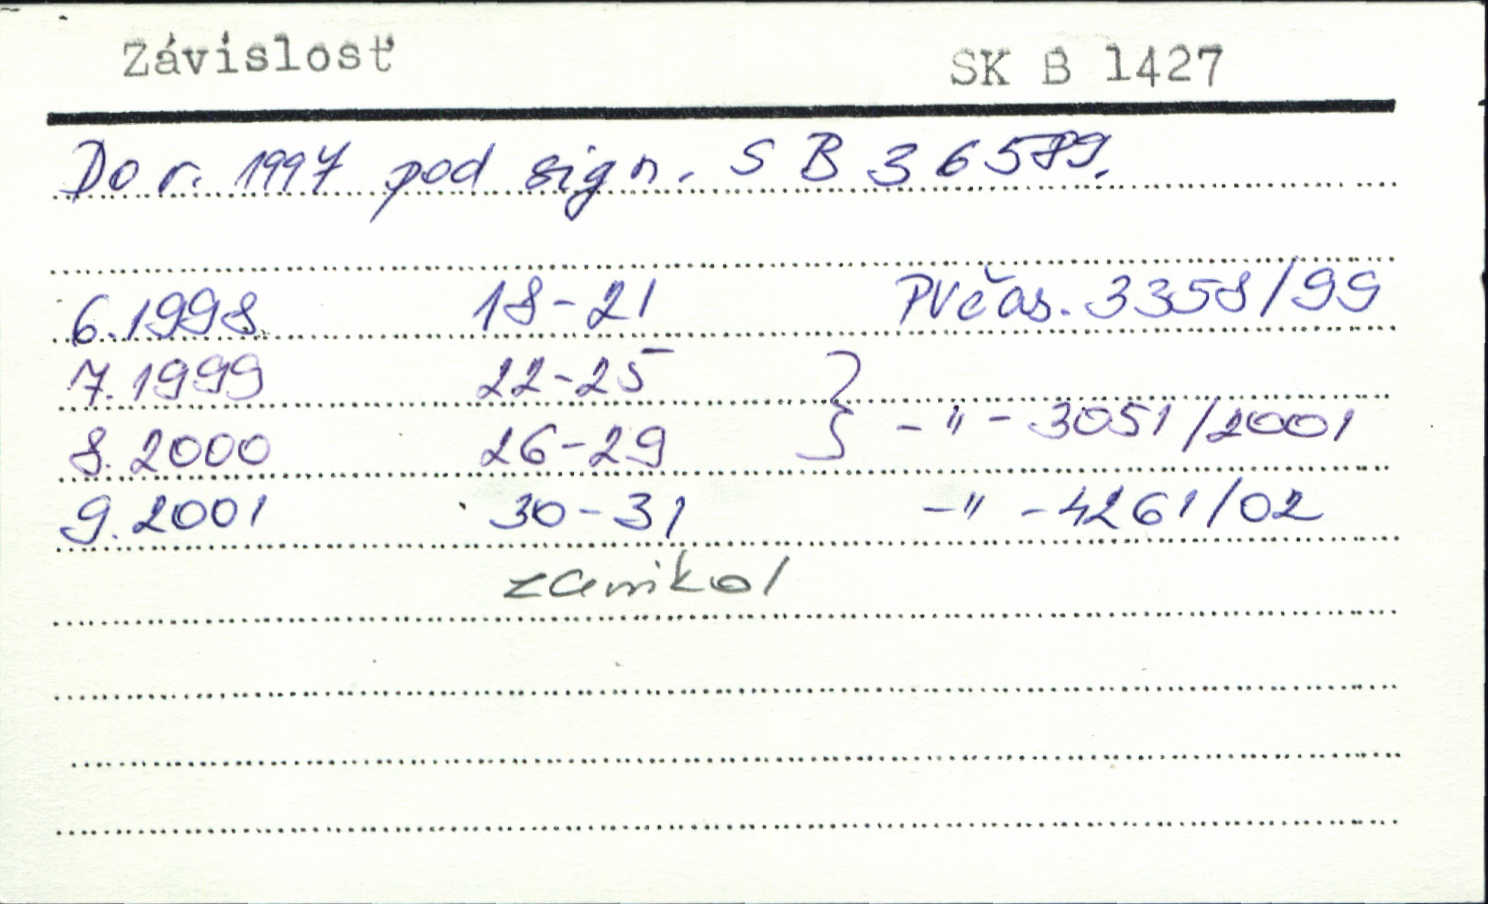 Závislosť SK B 1427
Do r. 1997 pod sign. S B 36589.
6.1998 18-21 PVčas. 3358/99
7.1999 22-25
8.2000 26-29 } -"- 3051/2001
9.2001 30-31 -"- 4261/02
zanikol